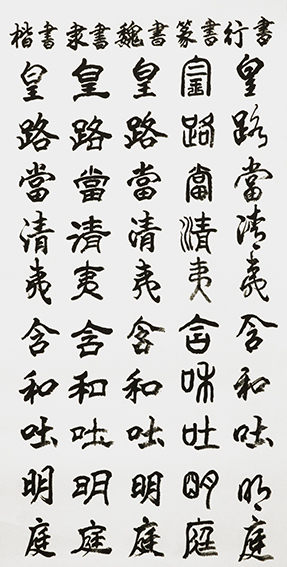 楷書 隶書 魏書 篆書 行書
皇路當清夷含和吐明庭
皇路當清夷含和吐明庭
皇路當清夷含和吐明庭
皇路當清夷含和吐明庭
皇路當清夷含和吐明庭